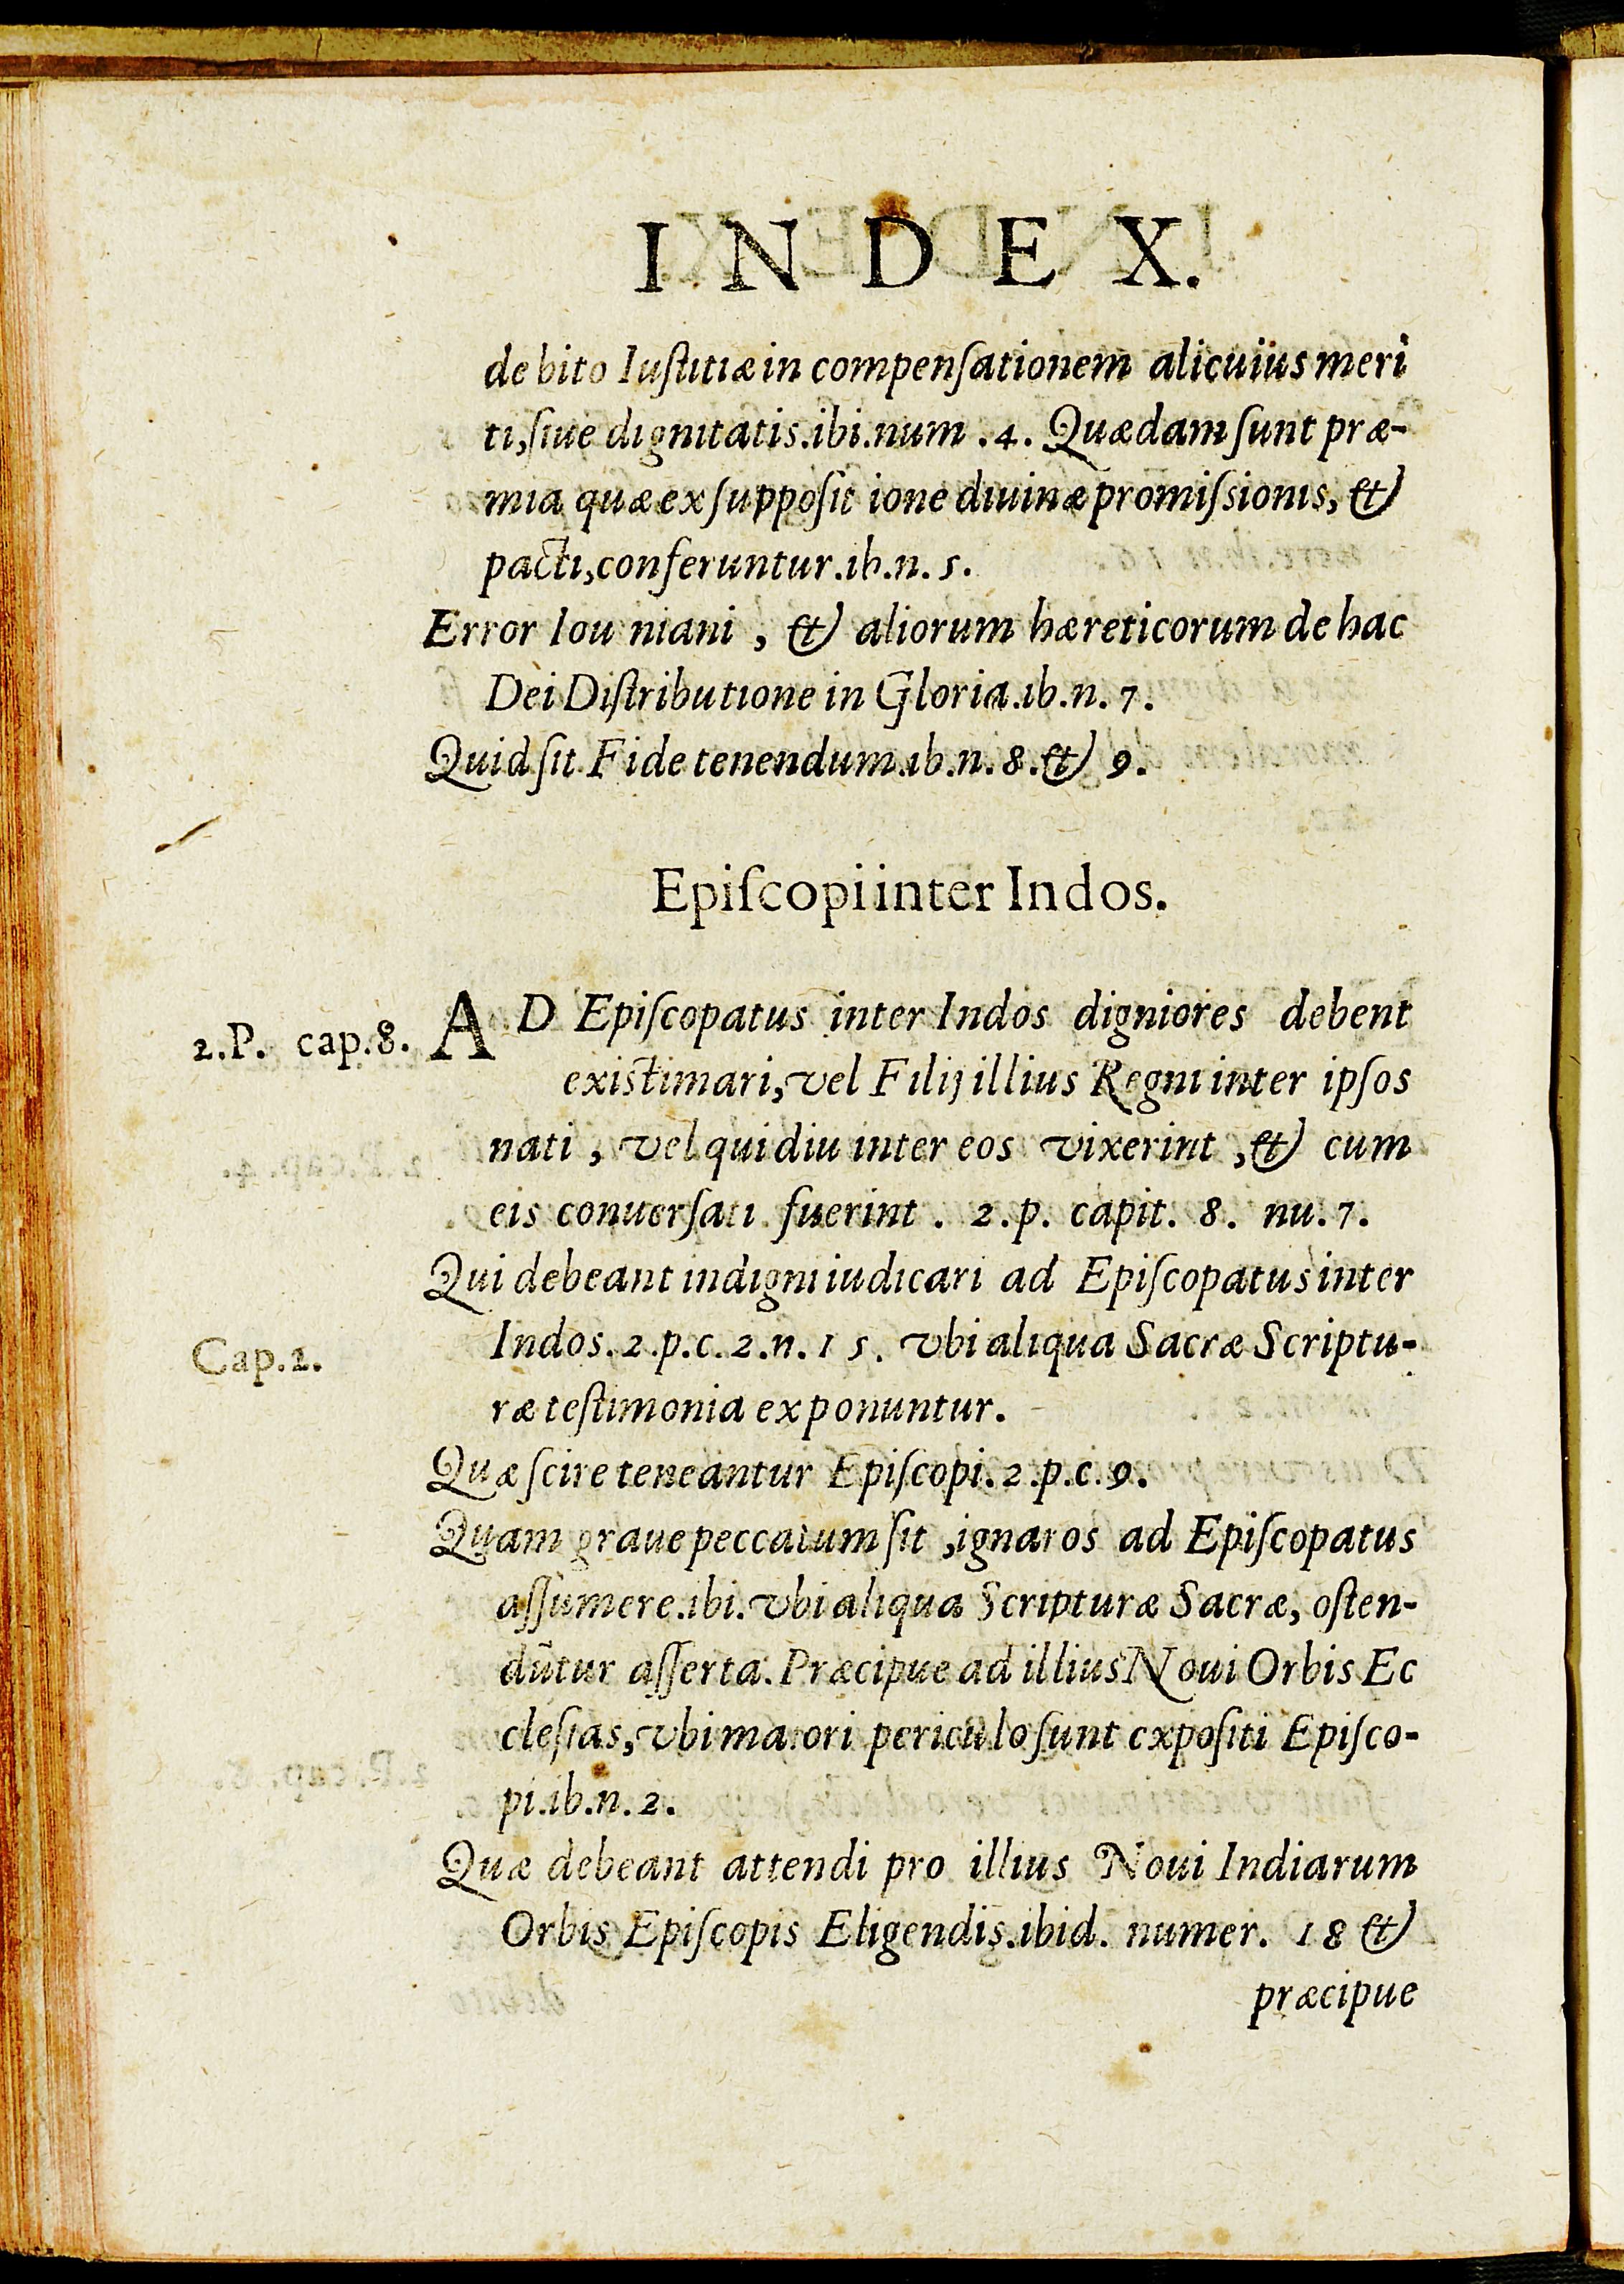 INDEX.
debito Iuſtitiæ in compenſationem alicuius meri
ti, ſiue dignitatis. ibi. num. 4. Quædam ſunt præ-
mia quæ ex ſuppoſitione diuinæ promiſsionis, &
pacti, conferuntur. ib. n. 5.
Error Iouniani, & aliorum hæreticorum de hac
Dei Diſtributione in Gloria. ib. n. 7.
Quid ſit Fide tenendum. ib. n. 8. & 9.
Epiſcopi inter Indos.
2. P. cap. 8.
AD Epiſcopatus inter Indos digniores debent
existimari, vel Filij illius Regni inter ipſos
nati, vel qui diu inter eos vixerint, & cum
eis conuerſati fuerint. 2. p. capit. 8. nu. 7.
Qui debeant indigni iudicari ad Epiſcopatus inter
Cap. 2.
Indos. 2. p. c. 2. n. 15. vbi aliqua Sacræ Scriptu-
ræ teſtimonia exponuntur.
Quæ ſcire teneantur Epiſcopi. 2. p. c. 9.
Quam graue peccatum ſit, ignaros ad Epiſcopatus
aſſumere. ibi. vbi aliqua Scripturæ Sacræ, oſten-
dũtur aſſerta. Præcipue ad illius Noui Orbis Ec
cleſias, vbi maiori periculo ſunt expoſiti Epiſco-
pi. ib. n. 2.
Quæ debeant attendi pro illius Noui Indiarum
Orbis Epiſcopis Eligendis. ibid. numer. 18 &
præcipue